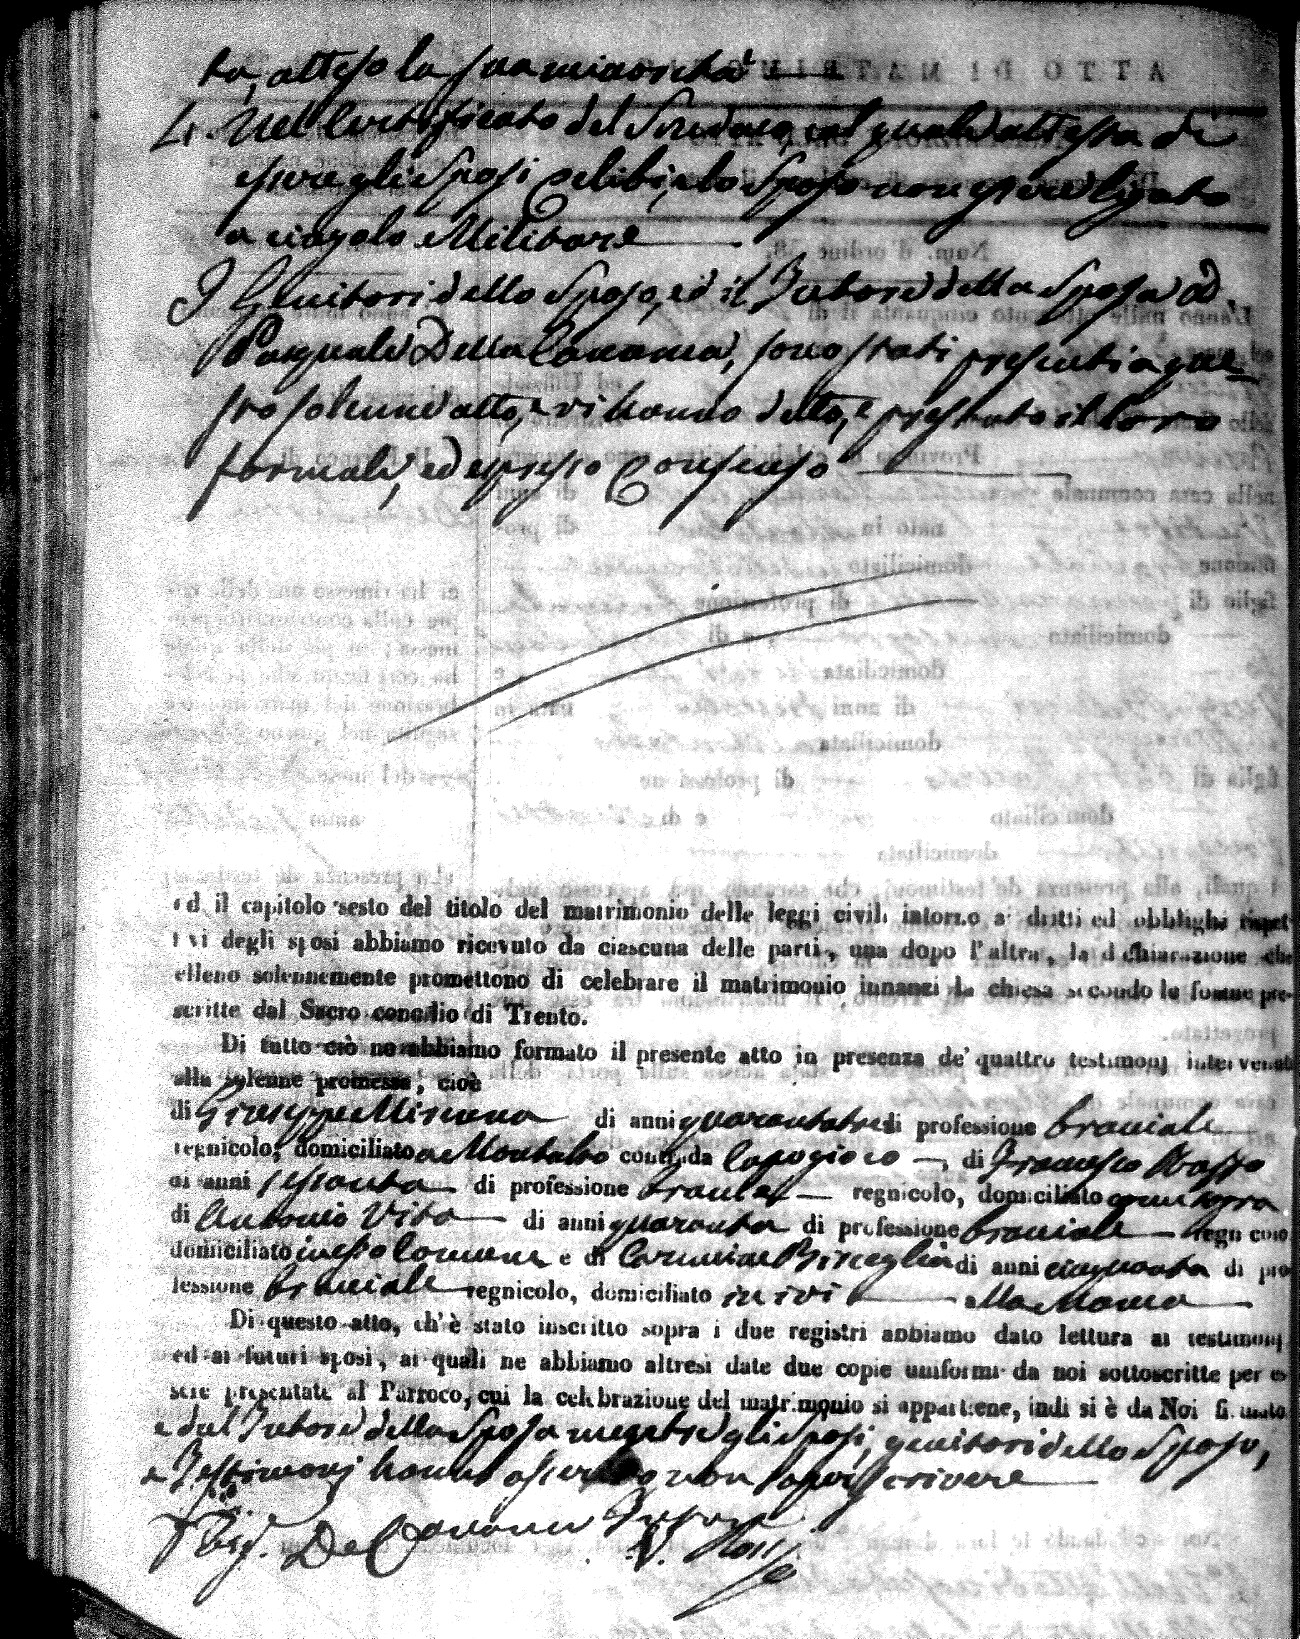 ta, atteso la sua minorità
4. Nel Certificato del Sindaco, col quale attesta di
essere gli Sposi celibi, e lo Sposo non essere ligato
a cingolo Militare
I Genitori dello Sposo, ed il Tutore della Sposa D.
Pasquale Della Canonica, sono stati presenti a que=
sto solenne atto, e vi hanno dato, e prestato il loro
formale, ed espresso Consenso
ed il capitolo sesto del titolo del matrimonio delle leggi civili intorno a' dritti ed obblighi rispet-
tivi degli sposi abbiamo ricevuto da ciascuna delle parti, una dopo l'altra, la dichiarazione che
elleno solennemente promettono di celebrare il matrimonio innanzi la chiesa secondo le forme pre-
scritte dal Sacro concilio di Trento.
Di tutto ciò ne abbiamo formato il presente atto in presenza de' quattro testimonj intervenuti
alla solenne promessa, cioè
di Giuseppe Misiano di anni quarantatre di professione braciale
regnicolo, domiciliato a Montalto contrada Capogioco, di Francesco Rosso
di anni sessanta di professione braciale regnicolo, domiciliato come sopra
di Antonio Vito di anni quaranta di professione braciale regnicolo
domiciliato in esso Comune e di Carmine Bisceglia di anni cinquanta di pro
fessione braciale regnicolo, domiciliato in ivi
Di questo atto, ch'è stato inscritto sopra i due registri abbiamo dato lettura ai testimonj
ed ai futuri sposi, ai quali ne abbiamo altresì date due copie uniformi da noi sottoscritte per es
sere presentate al Parroco, cui la celebrazione del matrimonio si appartiene, indi si è da Noi firmato
e dal Tutore della Sposa mentre gli Sposi, genitori dello Sposo,
e Testimonj hanno asserito non sapere scrivere